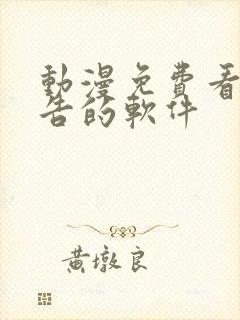 動漫免費看
告的軟件
黃墩良